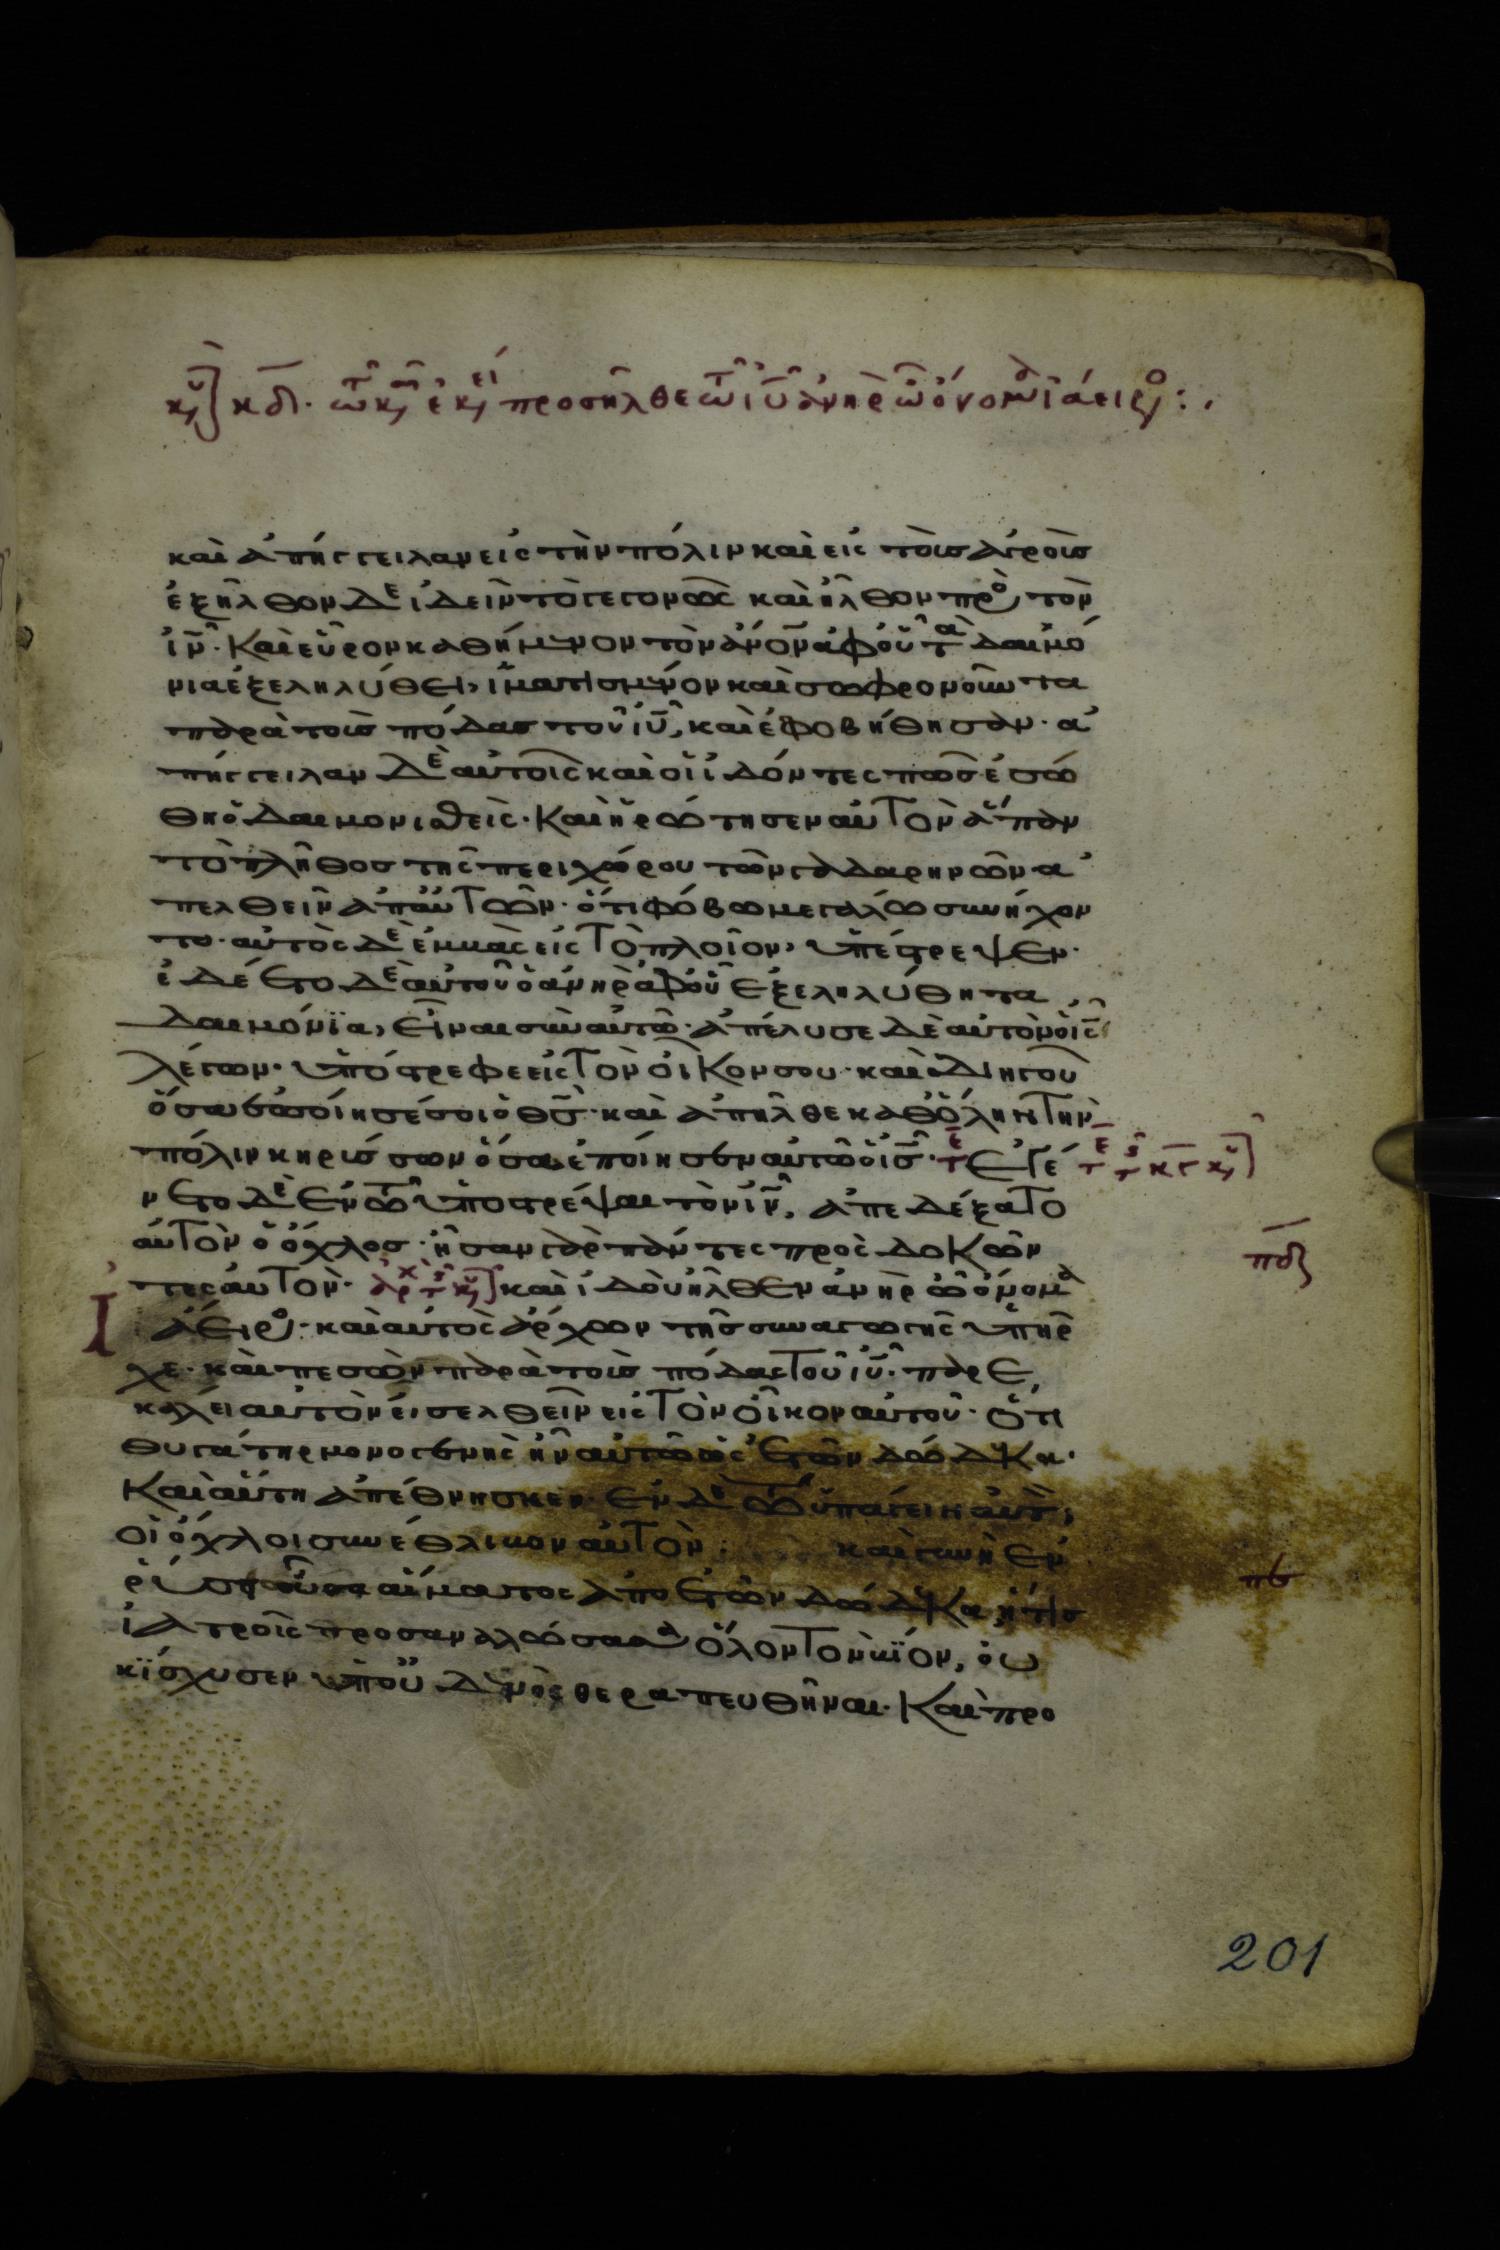 κυ κδ. τῶ κῶ ἐκει προσῆλθε τῶ ἰυ ἀνὴρ ὧ ὄνομα ἰάειρος :.
καὶ ἀπήγγειλαν εἰς τὴν πόλιν καὶ εἰς τοὺς ἀγροὺς
ἐξῆλθον δὲ ἰδεῖν τὸ γεγονὸς καὶ ἦλθον πρὸς τὸν
ἰν. Καὶ εὗρον καθήμενον τὸν ἀνον ἀφ οὗ τὰ δαιμό
νια ἐξεληλύθει, ἱματισμένον καὶ σωφρονοῦντα
παρὰ τοὺς πόδας τοῦ ἰυ, καὶ ἐφοβήθησαν. ἀ
πήγγειλαν δὲ αὐτοῖς καὶ οἱ ἰδόντες πῶς ἐσώ
θη ὁ δαιμονισθεὶς. Καὶ ἠρώτησεν αὐτὸν ἅπαν
τὸ πλῆθος τῆς περιχώρου τῶν γαδαρηνῶν ἀ
πελθεῖν ἀπ αὐτῶν. ὅτι φόβω μεγάλω συνήχον
το. αὐτὸς δὲ ἐμβὰς εἰς τὸ πλοῖον, ὑπέστρεψεν.
ἐδέετο δὲ αὐτοῦ ὁ ἀνὴρ ἀφ οὗ ἐξεληλύθη τα
δαιμόνϊα, εἶναι σὺν αὐτῶ. ἀπέλυσε δὲ αὐτὸν ὁ ις
λέγων. ὑπόστρεφε εἰς τὸν οἶκον σου. καὶ διηγοῦ
ὅσα ἐποίησέ σοι ὁ θς. καὶ ἀπῆλθε καθ ὅλην τὴν
πόλιν κηρύσσων ὅσα ἐποίησεν αὐτῶ ὁ ις. τε Ἐγέ
νετο δὲ ἐν τῶ ὑποστρέψαι τὸν ιν, ἀπεδέξατο
αὐτὸν ὁ ὄχλος. ἦσαν γὰρ πάντες προσδοκῶν
τες αὐτὸν. ἀρχ τ κυ καὶ ἰδοὺ ἦλθεν ἀνὴρ ὧ ὄνομα
Ἰάειρος. καὶ αὐτὸς ἄρχων τῆς συναγωγῆς ὑπῆρ
χε. καὶ πεσὼν παρὰ τοὺς πόδας τοῦ ἰυ. παρε
κάλει αὐτὸν εἰσελθεῖν εἰς τὸν οἶκον αὐτοῦ. ὅτι
θυγάτηρ μονογενὴς ἦν αὐτῶ ὡς ἐτῶν δώδεκα.
Καὶ αὕτη ἀπέθνησκεν. Ἐν δὲ τῶ ὑπάγειν αὐτὸν,
οἱ ὄχλοι συνέθλιβον αὐτὸν. καὶ γυνὴ ἐν
ῥύσει οὖσα αἵματος ἀπὸ ἐτῶν δώδεκα, ἥτις
ἰατροῖς προσαναλώσασα ὅλον τὸν βϊον, οὐ
κ ϊσχυσεν ὑπ οὐδενὸς θεραπευθῆναι. Καὶ προ
πδ
πε
201